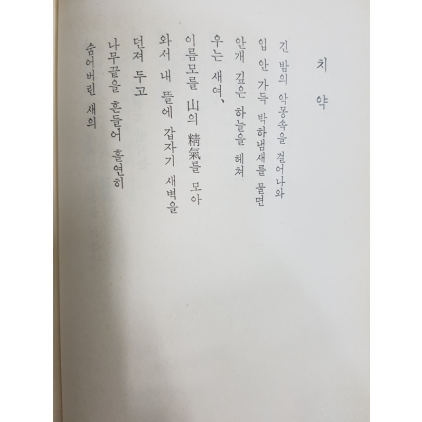 치약
긴 밤의 악몽속을 걸어나와
입 안 가득 박하냄새를 물면
안개 깊은 하늘을 헤쳐
우는 새여,
이름모를 山의 精氣를 모아
와서 내 뜰에 갑자기 새벽을
던져 두고
나무끝을 흔들어 홀연히
숨어버린 새의